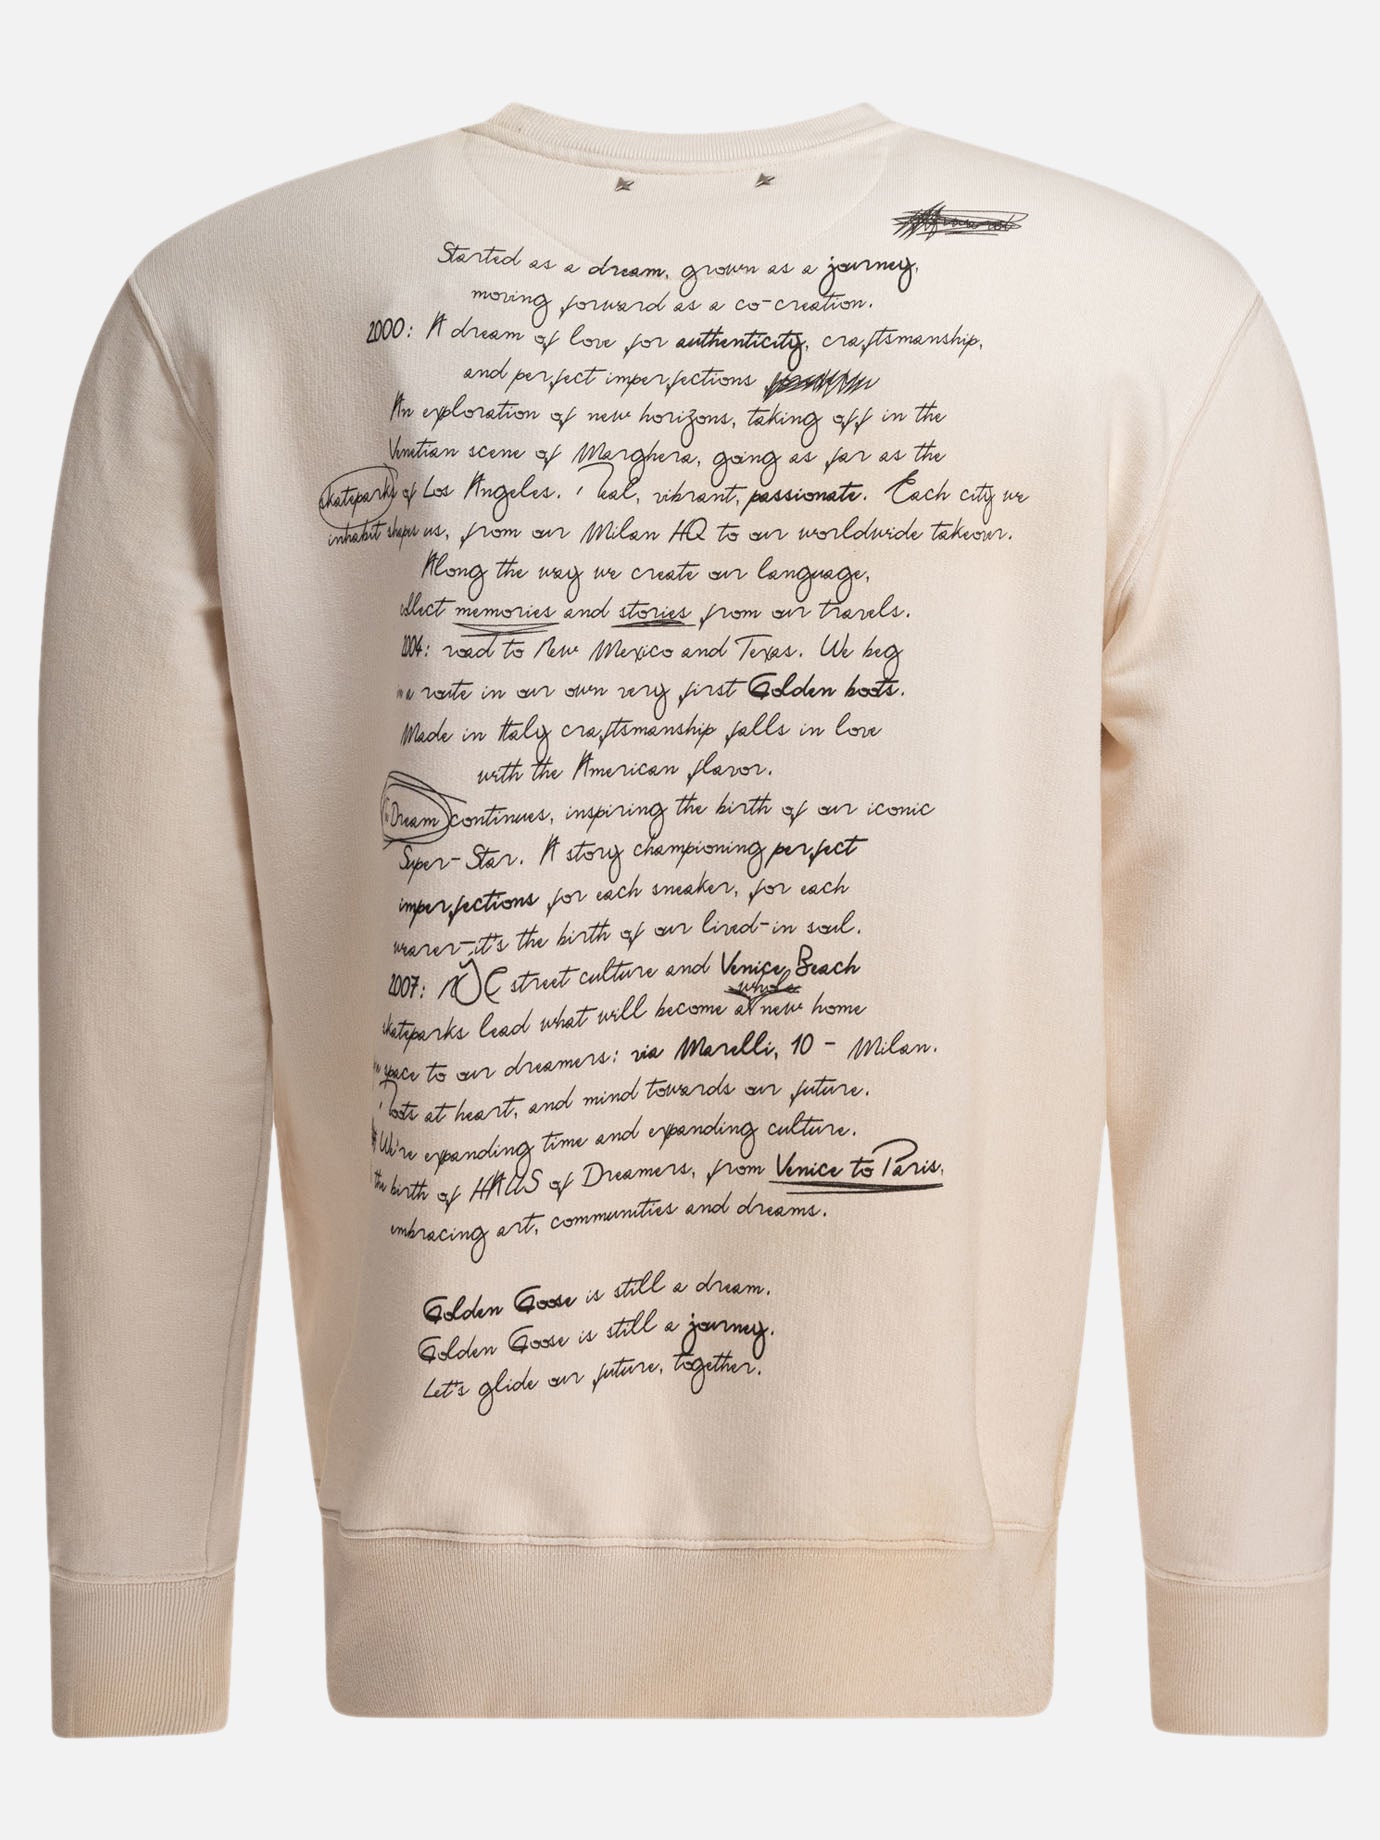 Started as a dream, grown as a journey,
moving forward as a co-creation.
2000: A dream of love for authenticity, craftsmanship,
and perfect imperfections
An exploration of new horizons, taking off in the
Venetian scene of Marghera, going as far as the
skateparks of Los Angeles. Real, vibrant, passionate. Each city we
inhabit shapes us, from our Milan HQ to our worldwide takeover.
Along the way we create our language,
collect memories and stories from our travels.
2004: road to New Mexico and Texas. We beg
route in our own very first Golden boots.
Made in Italy craftsmanship falls in love
with the American flavor.
Dream continues, inspiring the birth of our iconic
Super-Star. A story championing perfect
imperfections for each sneaker, for each
wearer-it's the birth of our lived-in soul.
2007: NYC street culture and Venice Beach
whole
skateparks lead what will become a new home
space to our dreamers: via Morelli, 10 - Milan.
Roots at heart, and mind towards our future.
We're expanding time and expanding culture.
the birth of HAUS of Dreamers, from Venice to Paris,
embracing art, communities and dreams.
Golden Goose is still a dream.
Golden Goose is still a journey.
Let's glide our future, together.